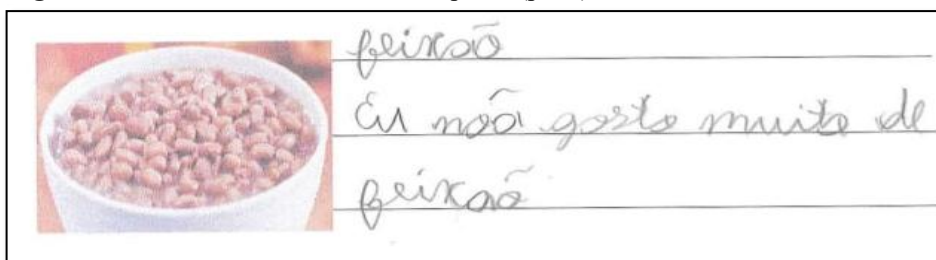 feixão
Eu não gosto muito de
feixão